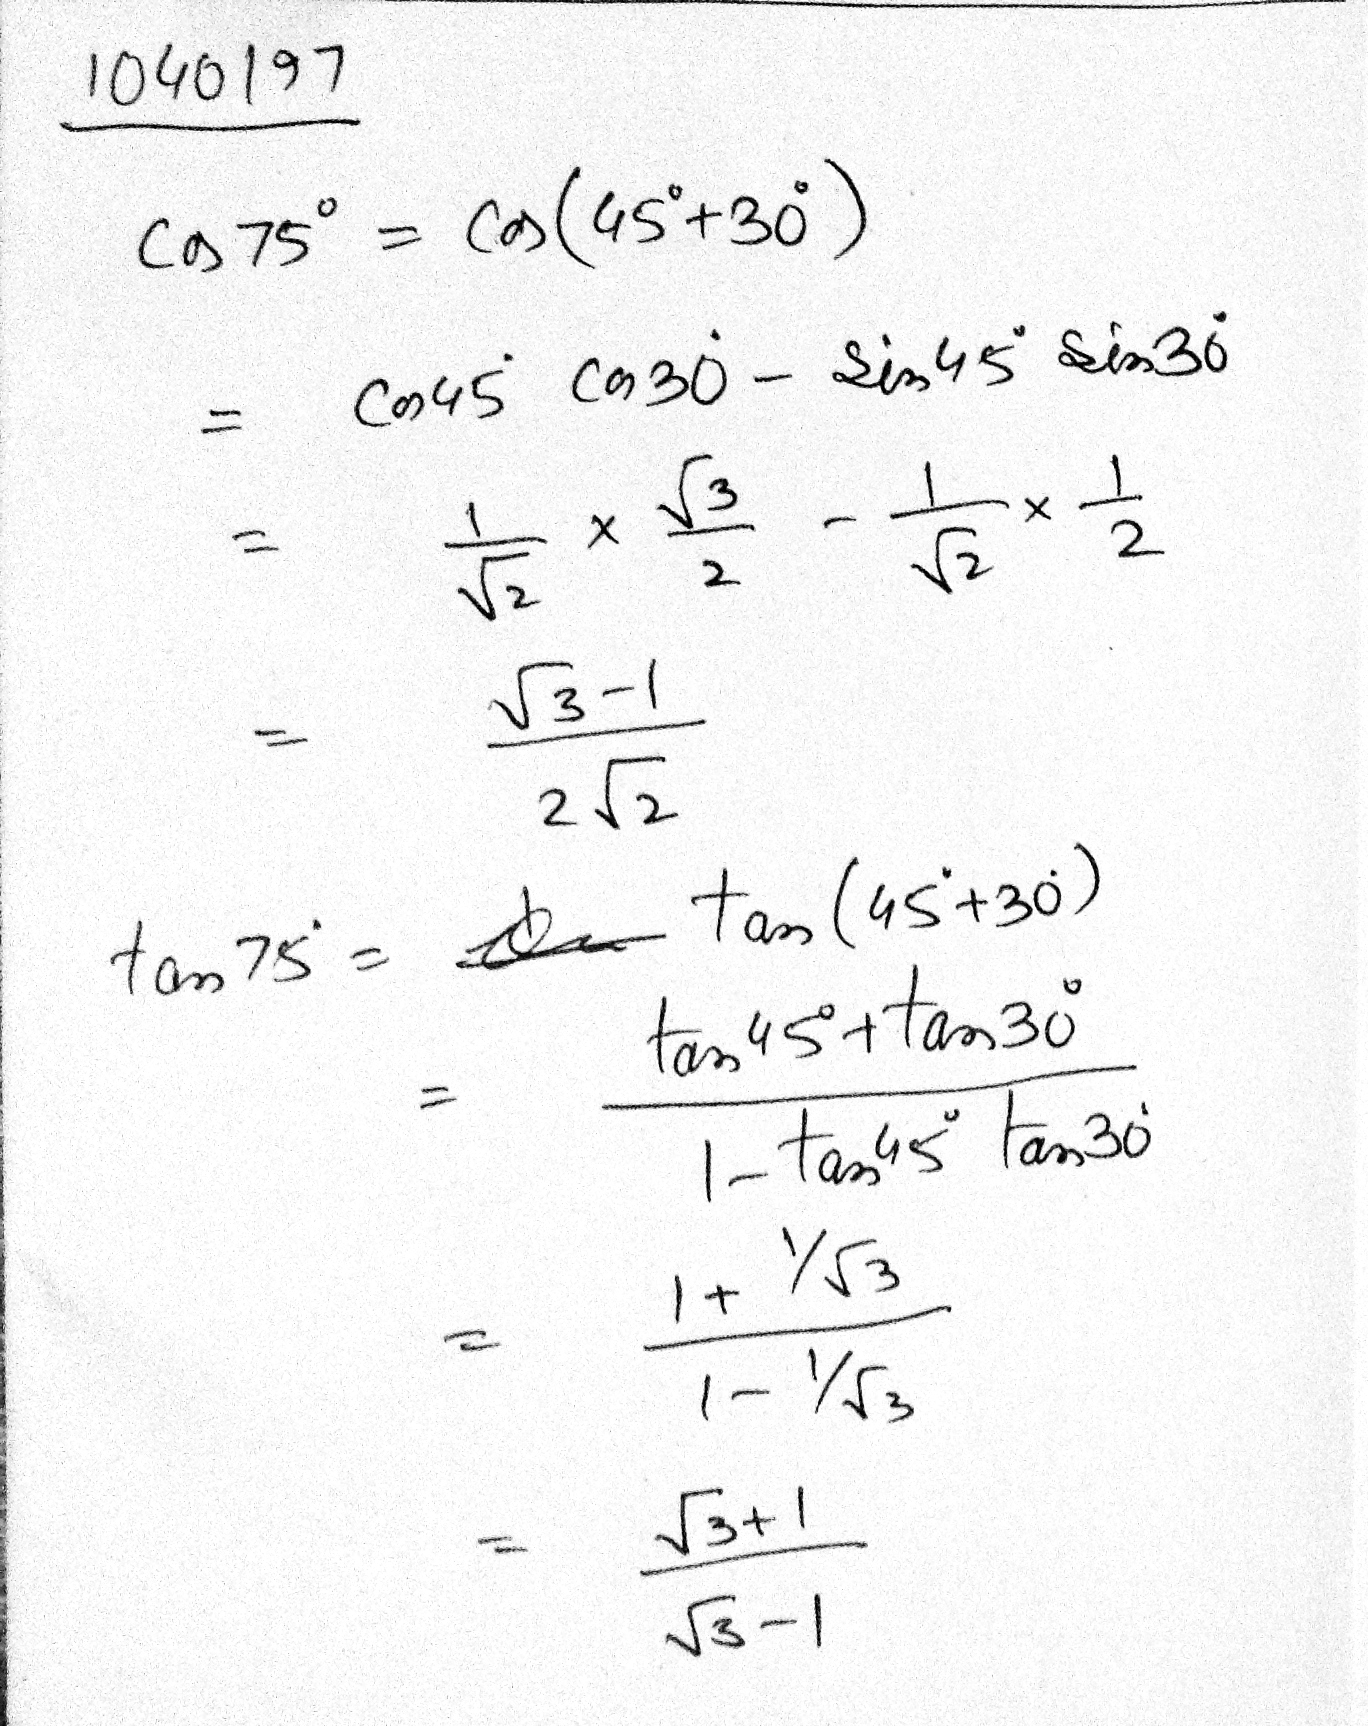 1040197
cos 75° = cos(45°+30°)
= cos45° cos30° - sin45° sin30°
= 1/√2 × √3/2 - 1/√2 × 1/2
= (√3-1)/(2√2)
tan 75° = tan (45°+30°)
= (tan45°+tan30°)/(1-tan45° tan30°)
= (1+1/√3)/(1-1/√3)
= (√3+1)/(√3-1)